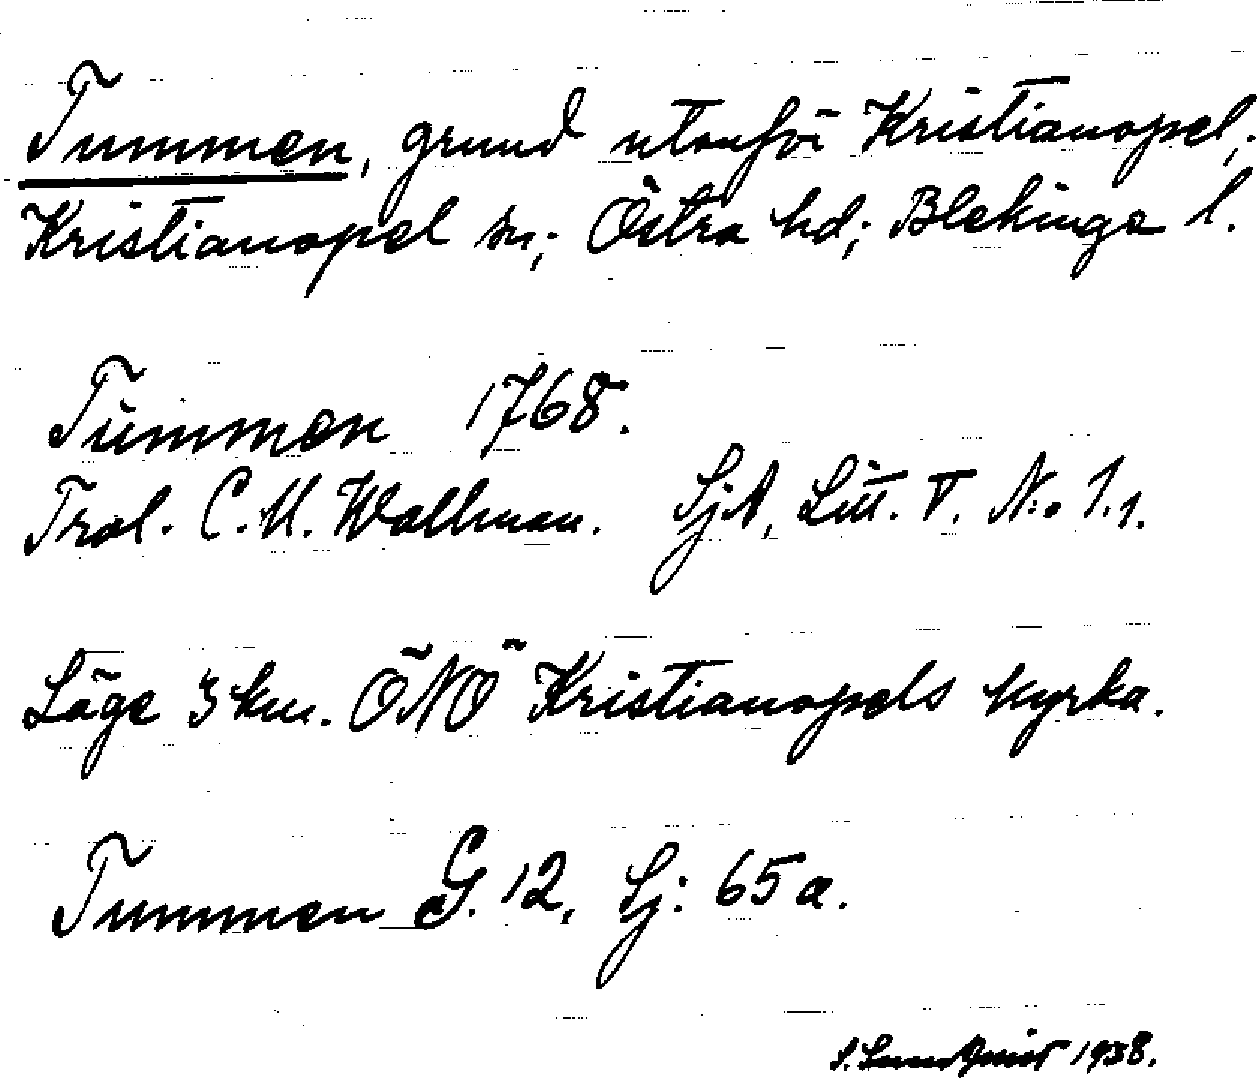 Tummen, grund utanför Kristianopel,
Kristianopel sn; Östra hd; Blekinge l.
Tummen 1768.
Trol. C.M. Wallman. SjA, Litt. V. No 1.1.
Läge 3 km. ÖNÖ Kristianopels kyrka.
Tummen G. 12, Sj: 65 a.
S. Lundquist 1938.